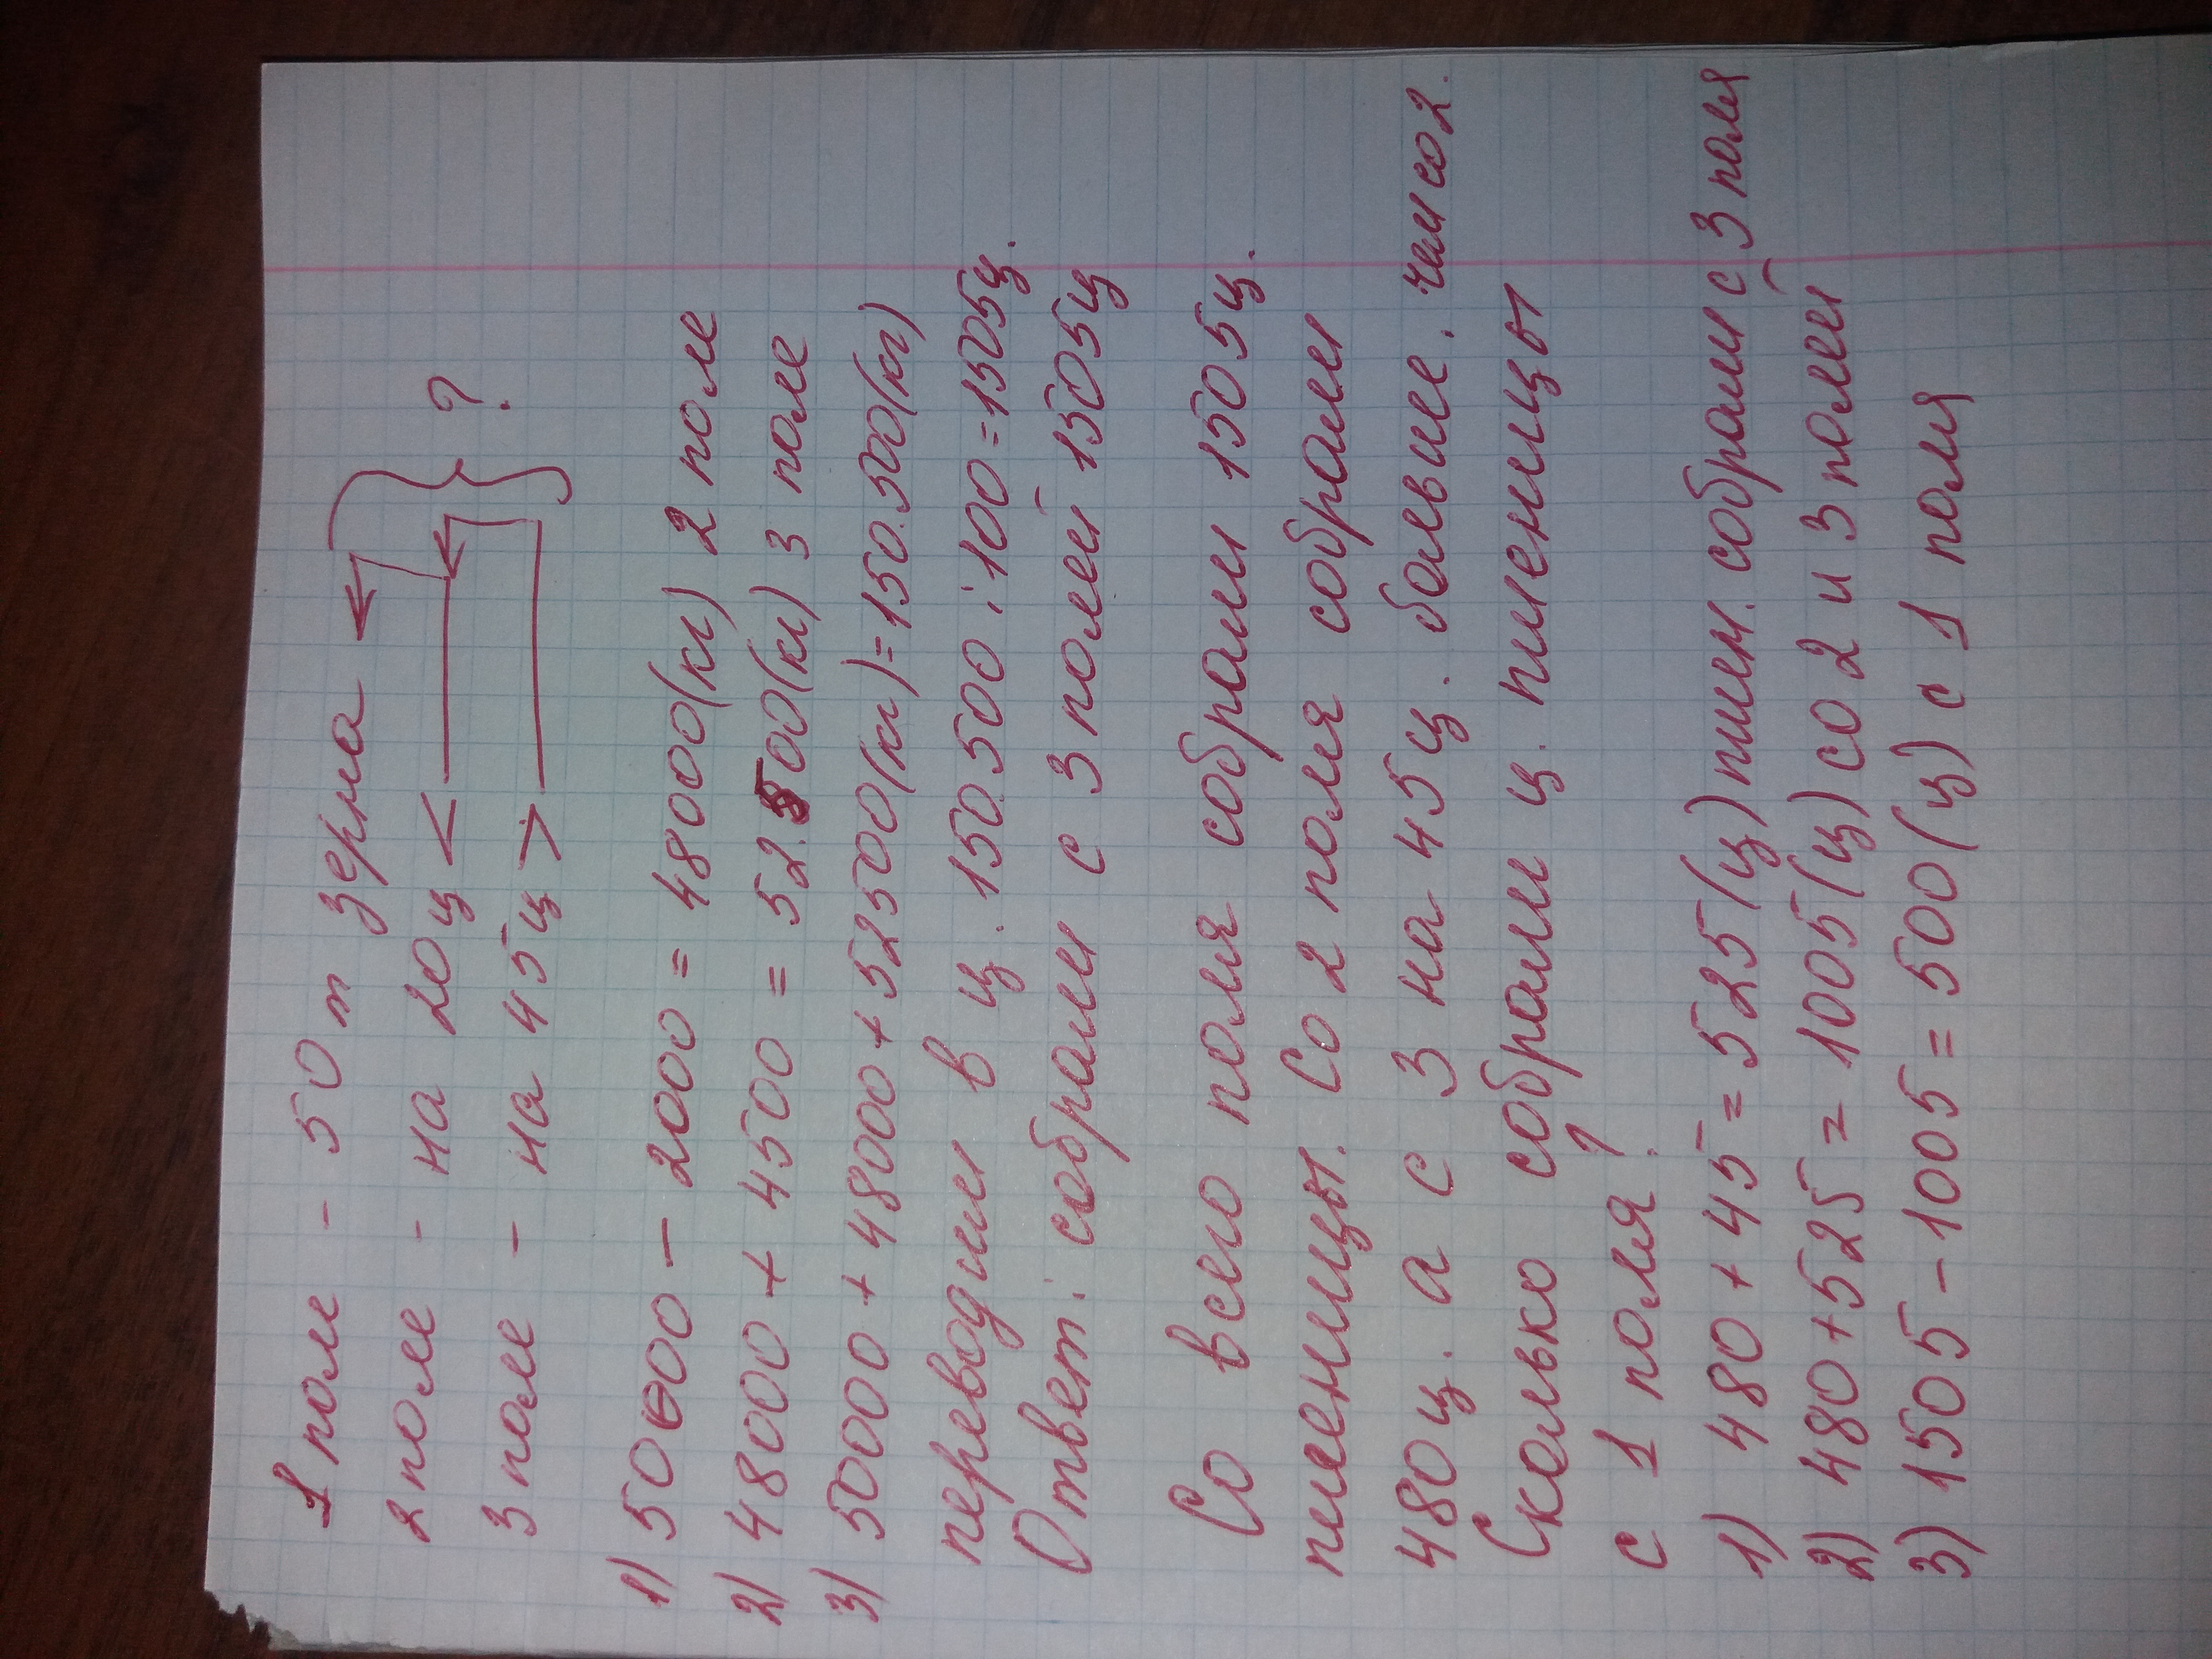 1 поле - 50 т зерна
2 поле - на 20ц <
3 поле - на 45ц > ?
1) 50000 - 2000 = 48000(кг) 2 поле
2) 48000 + 4500 = 52.500(кг) 3 поле
3) 50000 + 48000 + 52500(кг) = 150.500(кг)
переводим в ц. 150.500 : 100 = 1505ц.
Ответ: собрали с 3 полей 1505ц
Со всего поля собрали 1505ц.
пшеницы. Со 2 поля собрали
480ц. а с 3 на 45ц. больше. чем со 2.
Сколько собрали ц. пшеницы
с 1 поля?
1) 480 + 45 = 525(ц) пшен. собрали с 3 поля
2) 480 + 525 = 1005(ц) со 2 и 3 полей
3) 1505 - 1005 = 500(ц) с 1 поля